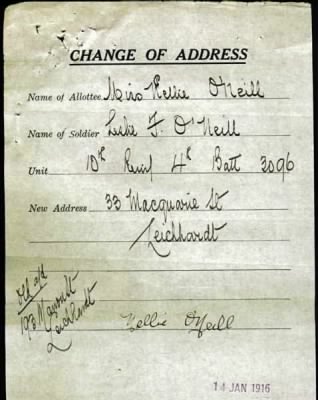 CHANGE OF ADDRESS
Name of Allottee Miss Nellie O'Neill
Name of Soldier Leslie F. O'Neill
Unit 10th Reinf 4th Batt 3096
New Address 33 Macquarie St
Leichhardt
Old add
193
Leichhardt
Nellie O'Neill
14 JAN 1916